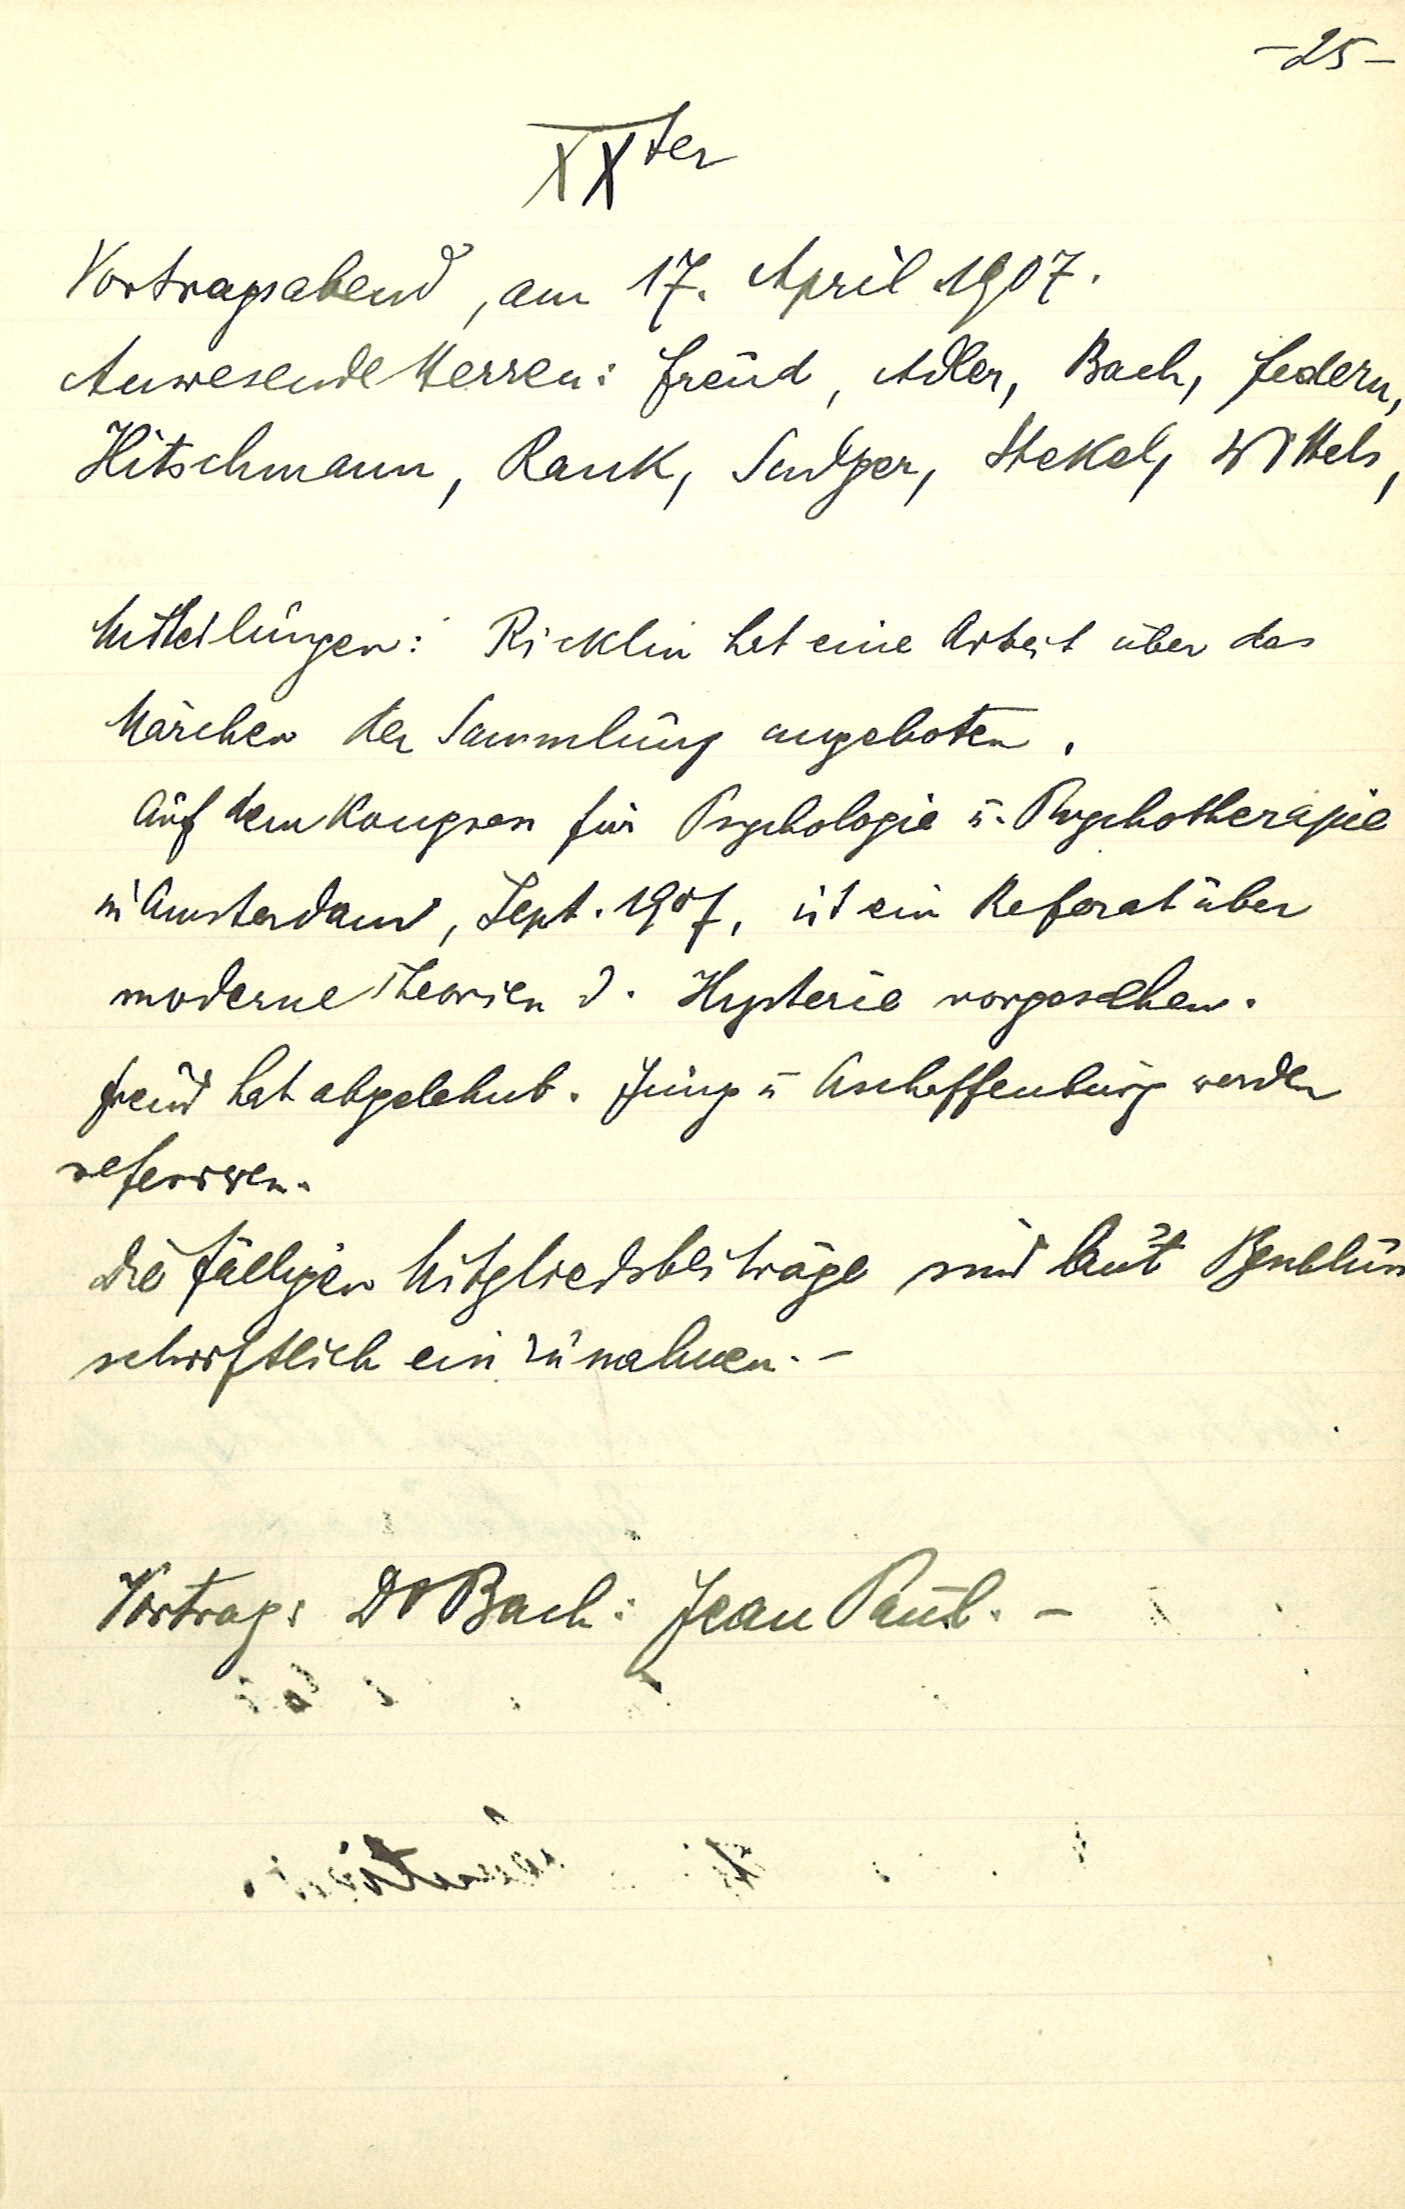 -25-
XXter
Vortragsabend, am 17. April 1907.
Anwesende Herren: Freud, Adler, Bach, Federn,
Hitschmann, Rank, Sadger, Stekel, Wittels,
Mitteilungen: Ricklin hat eine Arbeit über das
Märchen der Sammlung angeboten.
Auf dem Kongress für Psychologie u. Psychotherapie
in Amsterdam, Sept. 1907, ist ein Referat über
moderne Theorien d. Hysterie vorgesehen.
Freud hat abgelehnt. Jung u Aschaffenburg werden
referiren.
Die fälligen Mitgliedsbeiträge sind laut
schriftlich ein zu mahnen. -
Vortrag: Dr Bach: Jean Paul. -